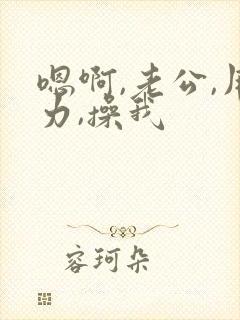 嗯啊,老公,用
力,操我
容珂朵